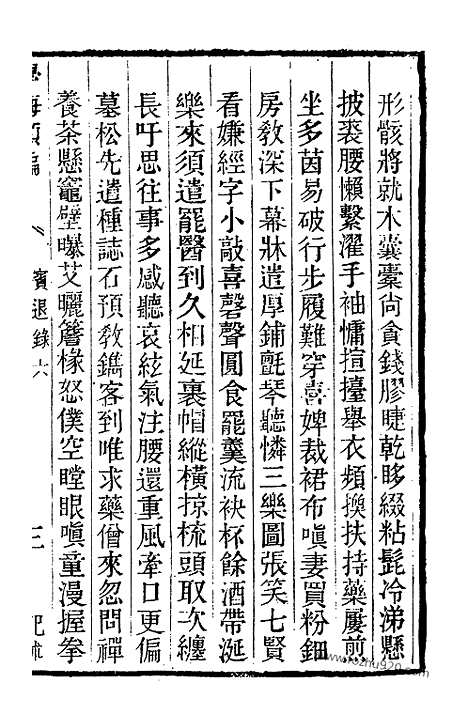 形骸將就木囊橐尚貪錢膠睫乾眵綴粘髭冷涕懸
披裘腰懶繫濯手袖慵揎擡舉衣頻換扶持藥屢煎
坐多茵易破行步履難穿喜婢裁裙布嗔妻買粉鈿
房教深下幕牀遣厚鋪氈琴聽憐三樂圖張笑七賢
看嫌經字小敲喜磬聲圓食罷羹流袂杯餘酒帶涎
樂來須遣罷醫到久相延裹帽縱橫掠梳頭取次纏
長吁思往事多感聽哀絃氣注腰還重風牽口更偏
墓松先遣種誌石預教鐫客到唯求藥僧來忽問禪
養茶懸竈壁曝艾曬簷椽怒僕空瞠眼嗔童漫握拳
學海類編 賓退錄六 三 記述
www.rozhu920.com